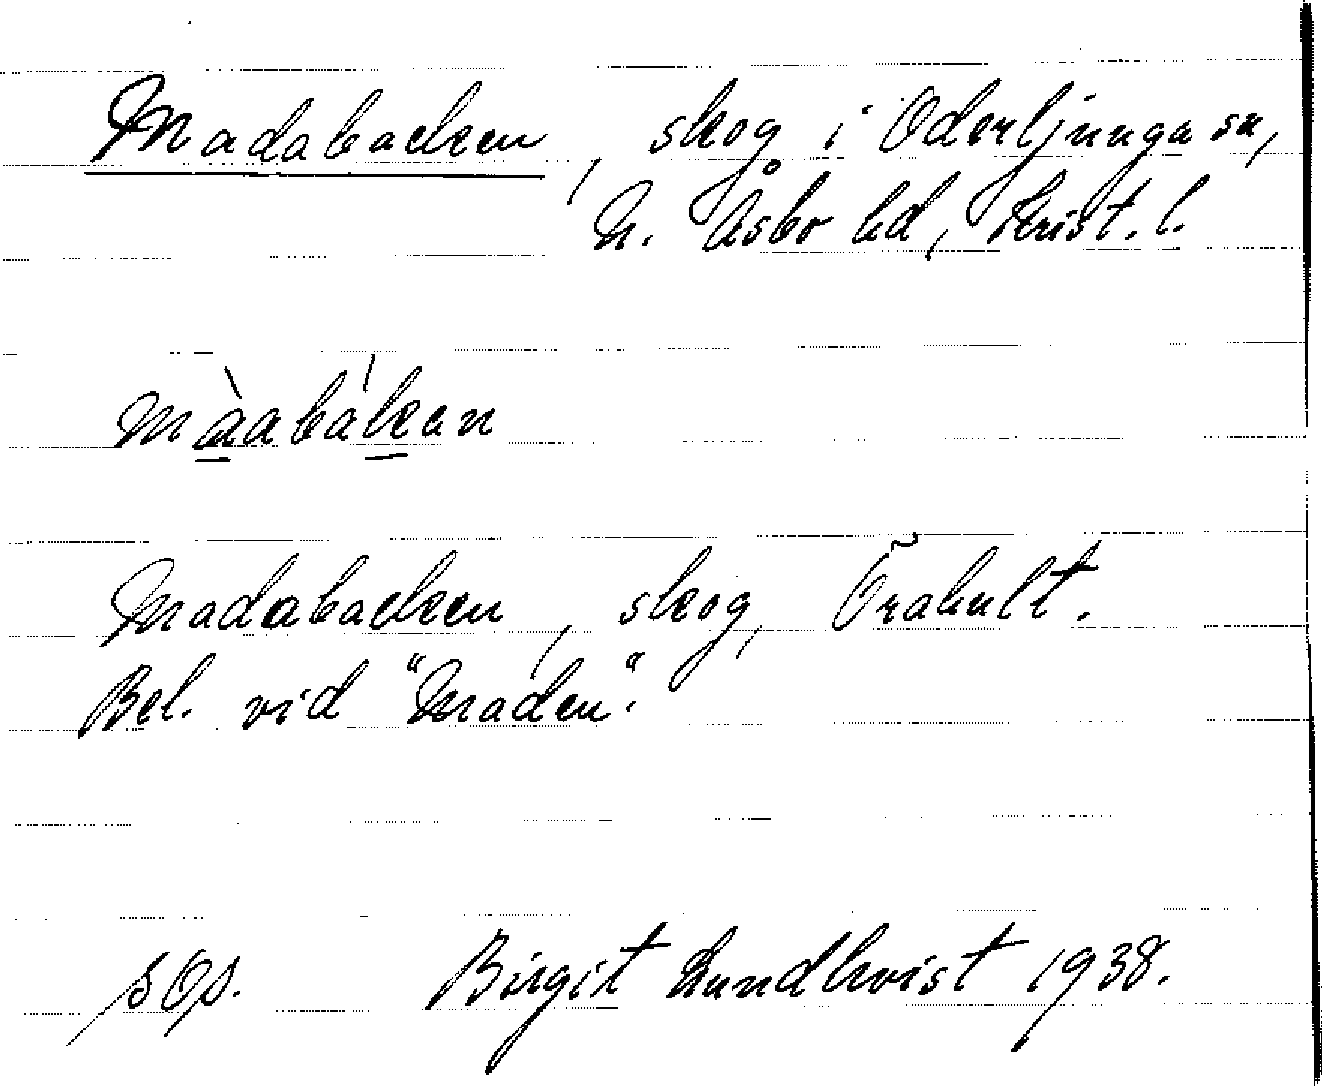 Madabacken, skog i Oderljunga sn,
N. Åsbo hd, Krist. l.
màabàkan
Madabacken, skog, Örahult.
Bel. vid "Maden".
Birgit Lundkvist 1938.